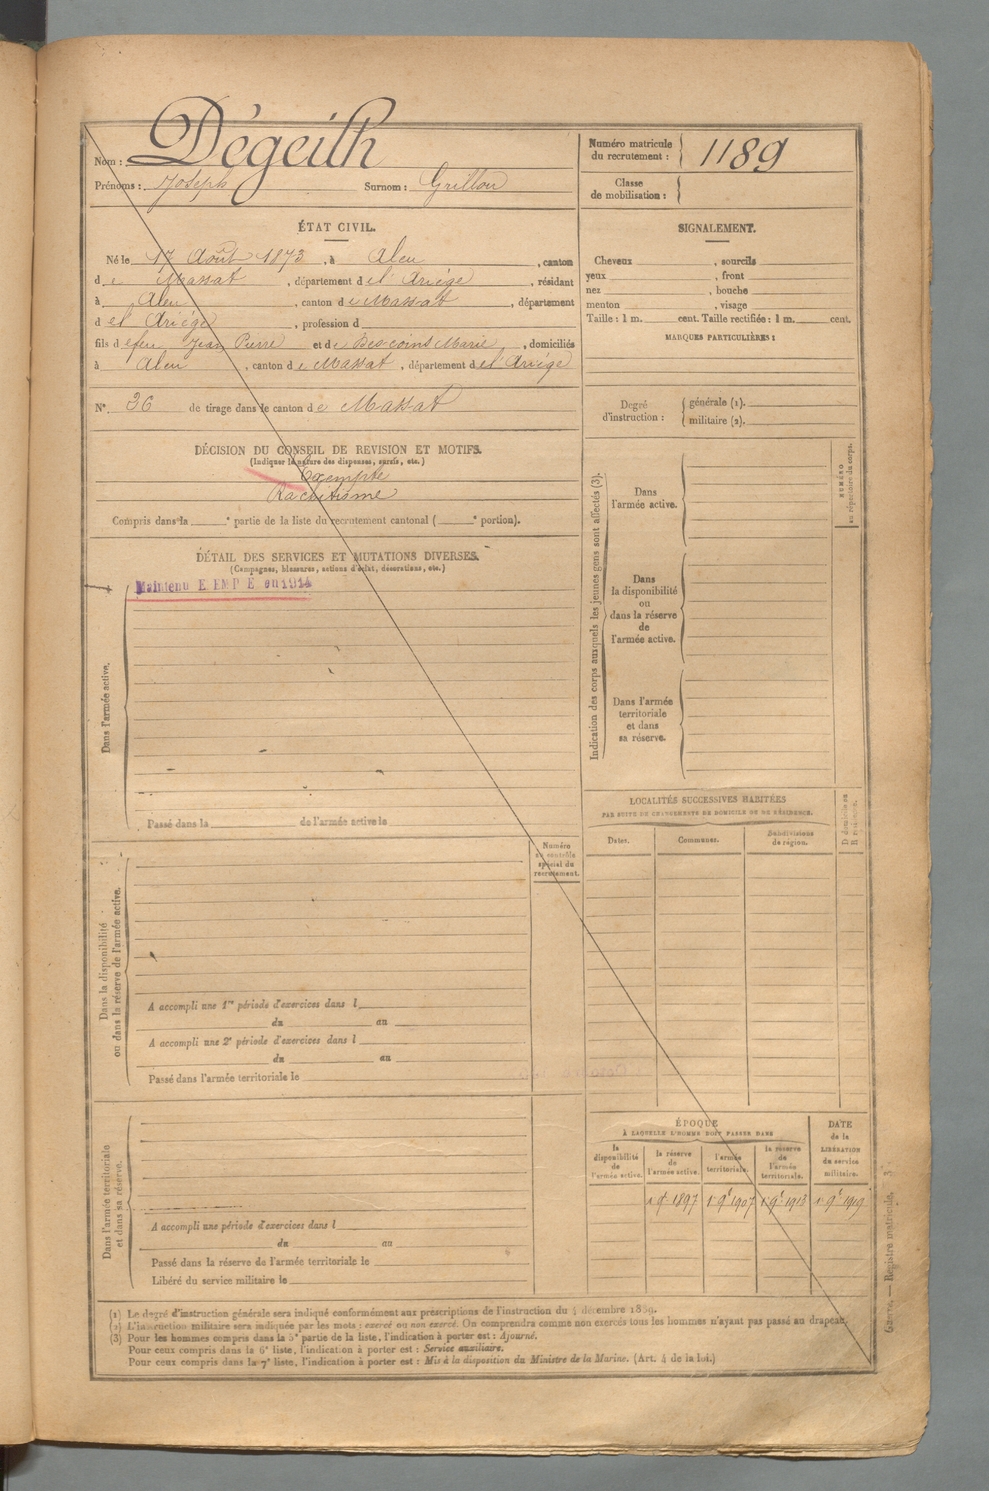 Nom : Dégeilh
Prénoms : Joseph Surnom : Grillou
Numéro matricule
du recrutement : 1189
Classe
de mobilisation :
ÉTAT CIVIL.
Né le 17 Août 1873, à Aleu, canton
de Massat, département de l'Ariége, résidant
à Aleu, canton de Massat, département
de l'Ariége, profession d
fils de feu Jean Pierre et de Descoins Marie, domiciliés
à Aleu, canton de Massat, département de l'Ariége
N° 36 de tirage dans le canton de Massat
DÉCISION DU CONSEIL DE REVISION ET MOTIFS.
(Indiquer la nature des dispenses, sursis, etc.)
Exempté
Rachitisme
Compris dans la e partie de la liste du recrutement cantonal ( e portion).
DÉTAIL DES SERVICES ET MUTATIONS DIVERSES.
(Campagnes, blessures, actions d'éclat, décorations, etc.)
Maintenu EXEMPTÉ en 1914
Dans l'armée active.
Passé dans la de l'armée active le
Numéro
au contrôle
spécial du
recrutement.
Dans la disponibilité
ou dans la réserve de l'armée active.
A accompli une 1re période d'exercices dans l
du au
A accompli une 2e période d'exercices dans l
du au
Passé dans l'armée territoriale le
Dans l'armée territoriale
et dans sa réserve.
A accompli une période d'exercices dans l
du au
Passé dans la réserve de l'armée territoriale le
Libéré du service militaire le
SIGNALEMENT.
Cheveux , sourcils
yeux , front
nez , bouche
menton , visage
Taille : 1 m. cent. Taille rectifiée : 1 m. cent.
MARQUES PARTICULIÈRES :
Degré
d'instruction :
générale (1).
militaire (2).
Indication des corps auxquels les jeunes gens sont affectés (3).
Dans
l'armée active.
Dans
la disponibilité
ou
dans la réserve
de
l'armée active.
Dans l'armée
territoriale
et dans
sa réserve.
NUMÉRO
au répertoire du corps.
LOCALITÉS SUCCESSIVES HABITÉES
PAR SUITE DE CHANGEMENTS DE DOMICILE OU DE RÉSIDENCE.
Dates.
Communes.
Subdivisions
de région.
D domicile ou
R résidence.
ÉPOQUE
À LAQUELLE L'HOMME DOIT PASSER DANS
la
disponibilité
de
l'armée active.
la réserve
de
l'armée active.
l'armée
territoriale.
la réserve
de
l'armée
territoriale.
DATE
de la
LIBÉRATION
du service
militaire.
1er 9e 1897 1er 9e 1907 1er 9e 1913 1er 9e 1919
(1) Le degré d'instruction générale sera indiqué conformément aux prescriptions de l'instruction du 4 décembre 1889.
(2) L'instruction militaire sera indiquée par les mots : exercé ou non exercé. On comprendra comme non exercés tous les hommes n'ayant pas passé au drapeau.
(3) Pour les hommes compris dans la 5e partie de la liste, l'indication à porter est : Ajourné.
Pour ceux compris dans la 6e liste, l'indication à porter est : Service auxiliaire.
Pour ceux compris dans la 7e liste, l'indication à porter est : Mis à la disposition du Ministre de la Marine. (Art. 4 de la loi.)
Registre matricule.